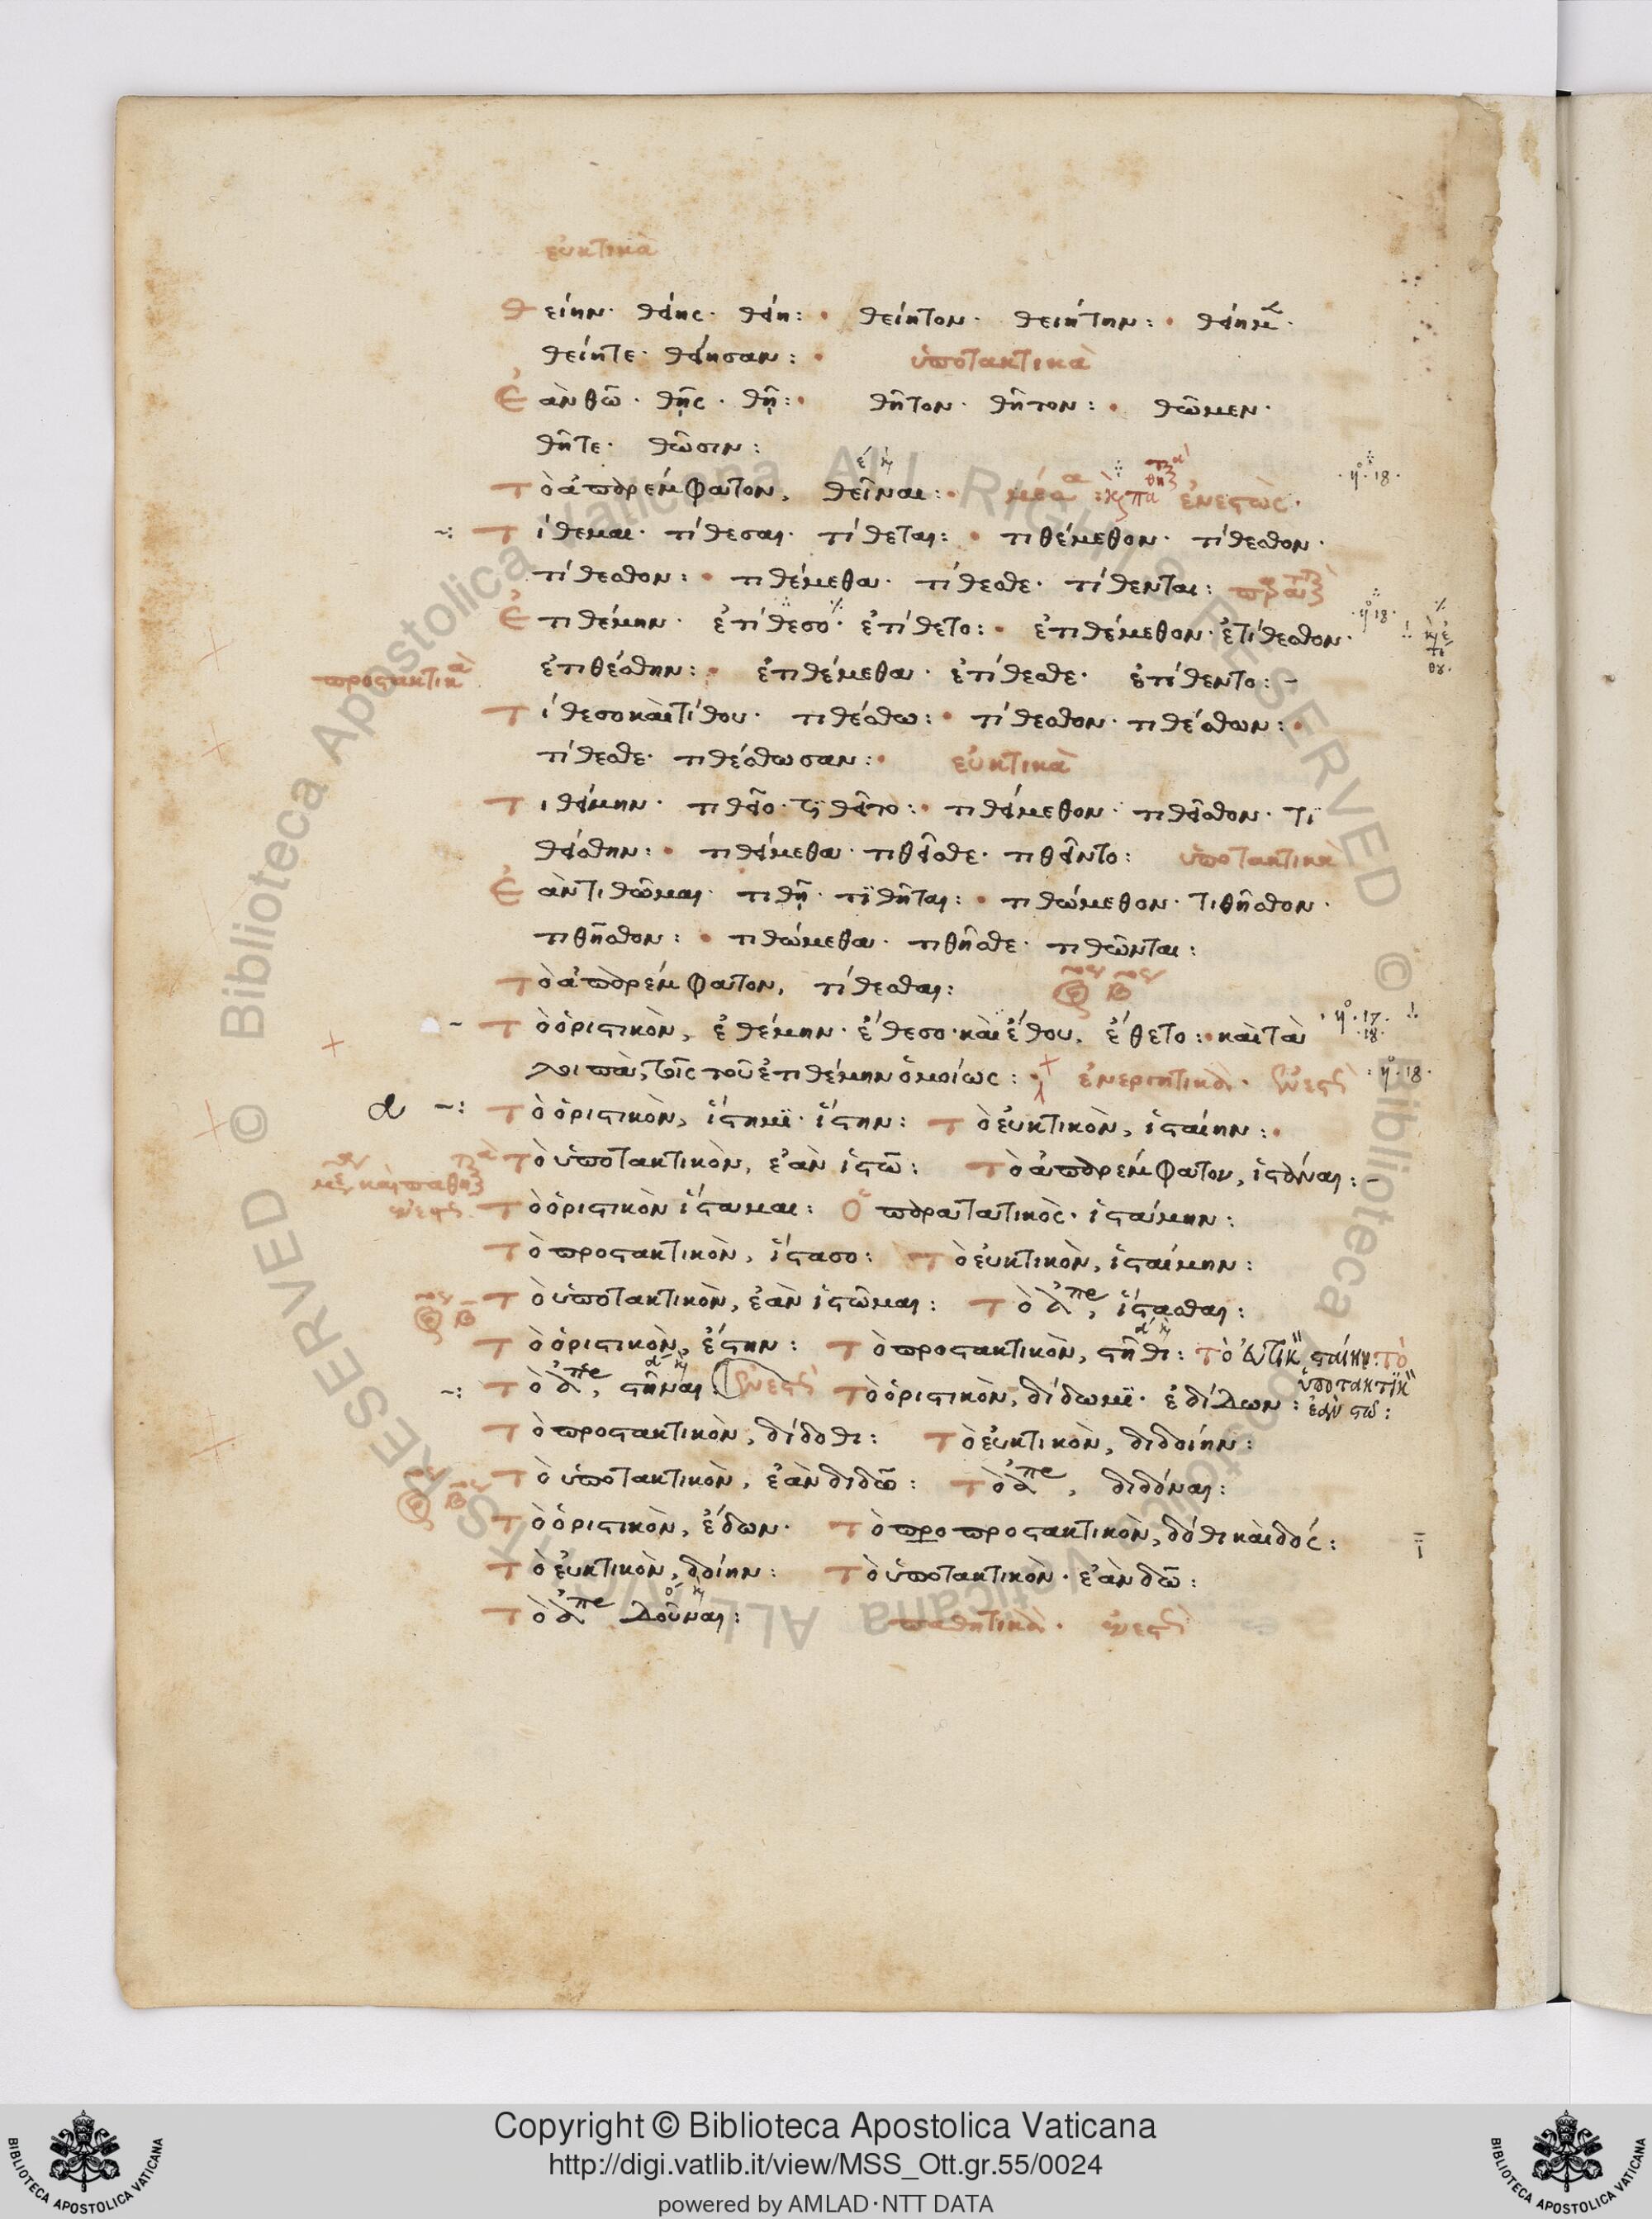 εὐκτικὰ
θείην· θείης· θείη: θείητον· θειήτην: θείημεν·
θείητε· θείησαν: ὑποτακτικὰ
Ἐὰν θῶ· θῇς· θῇ: θῆτον· θῆτον: θῶμεν·
θῆτε· θῶσιν:
Τὸ ἀπαρέμφατον, θεῖναι: ἐνεστὼς·
Τίθεμαι· τίθεσαι· τίθεται: τιθέμεθον· τίθεσθον·
τίθεσθον: τιθέμεθα· τίθεσθε· τίθενται:
Ἐτιθέμην· ἐτίθεσο· ἐτίθετο: ἐτιθέμεθον· ἐτίθεσθον·
ἐτιθέσθην: ἐτιθέμεθα· ἐτίθεσθε· ἐτίθεντο:
προστακτικὰ
Τίθεσο καὶ τίθου· τιθέσθω: τίθεσθον· τιθέσθων:
τίθεσθε· τιθέσθωσαν: εὐκτικὰ
Τιθείμην· τιθεῖο· τιθεῖτο: τιθείμεθον· τιθεῖσθον· τι
θείσθην: τιθείμεθα· τιθεῖσθε· τιθεῖντο: ὑποτακτικὰ
Ἐὰν τιθῶμαι· τιθῇ· τιθῆται: τιθώμεθον· τιθῆσθον·
τιθῆσθον: τιθώμεθα· τιθῆσθε· τιθῶνται:
Τὸ ἀπαρέμφατον, τίθεσθαι:
Τὸ ὁριστικὸν, ἐθέμην· ἔθεσο· καὶ ἔθου, ἔθετο: καὶ τὰ
λοιπὰ, τοῖς τοῦ ἐτιθέμην ὁμοίως: ἐνεργητικὰ·
Τὸ ὁριστικὸν, ἵστημι· ἵστην: Τὸ εὐκτικὸν, ἱσταίην:
Τὸ ὑποτακτικὸν, ἐὰν ἱστῶ: Τὸ ἀπαρέμφατον, ἱστάναι:
Τὸ ὁριστικὸν ἵσταμαι: Ὁ παρατατικὸς· ἱστάμην:
Τὸ προστακτικὸν, ἵστασο: Τὸ εὐκτικὸν, ἱσταίμην:
Τὸ ὑποτακτικὸν, ἐὰν ἱστῶμαι: Τὸ ἀπαρε, ἵστασθαι:
Τὸ ὁριστικὸν, ἔστην: Τὸ προστακτικὸν, στῆθι: Τὸ εὐκτικ σταίην: τὸ
ὑποτακτικ
ἐὰν στῶ:
Τὸ ἀπαρε, στῆναι: Τὸ ὁριστικὸν, δίδωμι· ἐδίδων:
Τὸ προστακτικὸν, δίδοθι: Τὸ εὐκτικὸν, διδοίην:
Τὸ ὑποτακτικὸν, ἐὰν διδῶ: Τὸ ἀπαρε, διδόναι:
Τὸ ὁριστικὸν, ἔδων· Τὸ προ προστακτικὸν, δόθι καὶ δός:
Τὸ εὐκτικὸν, δοίην: Τὸ ὑποτακτικὸν· ἐὰν δῶ:
Τὸ ἀπαρε δοῦναι: παθητικὰ·
Copyright © Biblioteca Apostolica Vaticana
http://digi.vatlib.it/view/MSS_Ott.gr.55/0024
powered by AMLAD·NTT DATA